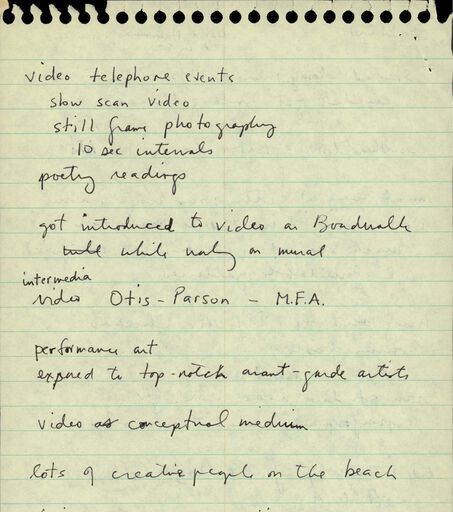 video telephone events
slow scan video
still frame photography
10 sec intervals
poetry readings
got introduced to video on Boardwalk
while on mural
intermedia
video Otis-Parson - M.F.A.
performance art
exposed to top-notch avant-garde artists
video as conceptual medium
lots of creative people on the beach